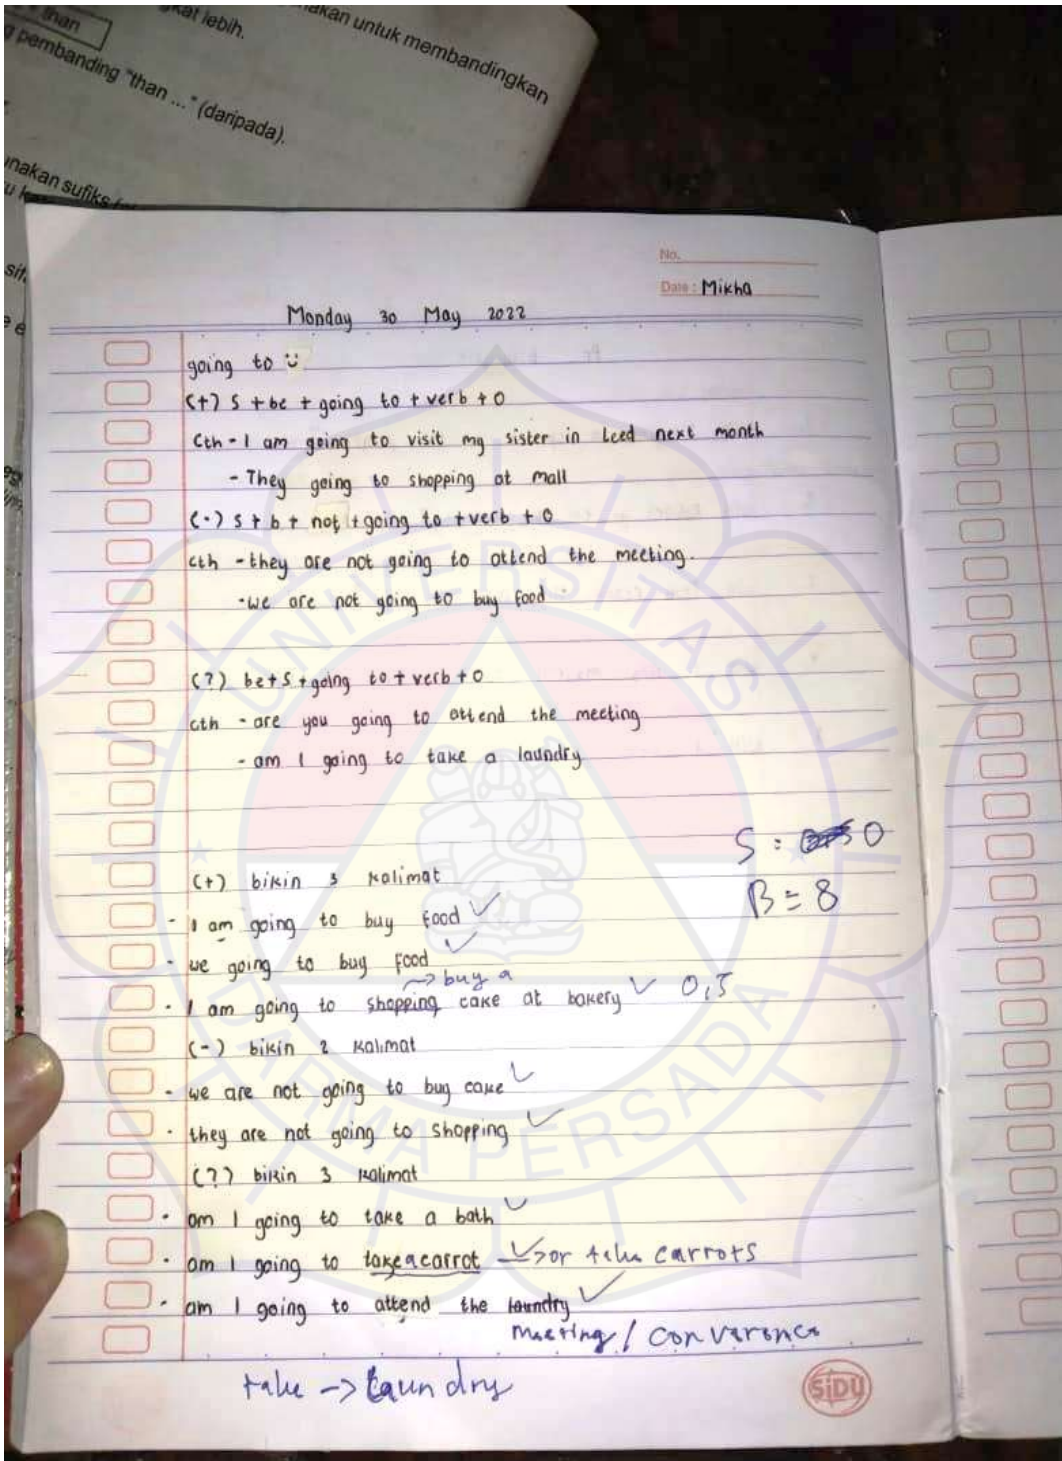 than
gkat lebih.
nakan untuk membandingkan
g pembanding "than ..." (daripada).
nakan sufiks
No.
Date : Mikha
Monday 30 May 2022
going to
(+) S + be + going to + verb + O
Cth - I am going to visit my sister in Leed next month
- They going to shopping at mall
(-) S + b + not + going to + verb + O
cth - they are not going to attend the meeting.
- we are not going to buy food
(?) be + S + going to + verb + O
cth - are you going to attend the meeting
- am I going to take a laundry
S : 0
B = 8
(+) bikin 3 kalimat
- I am going to buy food
- we going to buy food
→ buy a
- I am going to shopping cake at bakery 0,5
(-) bikin 2 kalimat
- we are not going to buy cake
- they are not going to shopping
(?) bikin 3 kalimat
- am I going to take a bath
- am I going to take a carrot → or take carrots
- am I going to attend the laundry
meeting / converence
take → laundry
SiDU
UNIVERSITAS
DARMA PERSADA